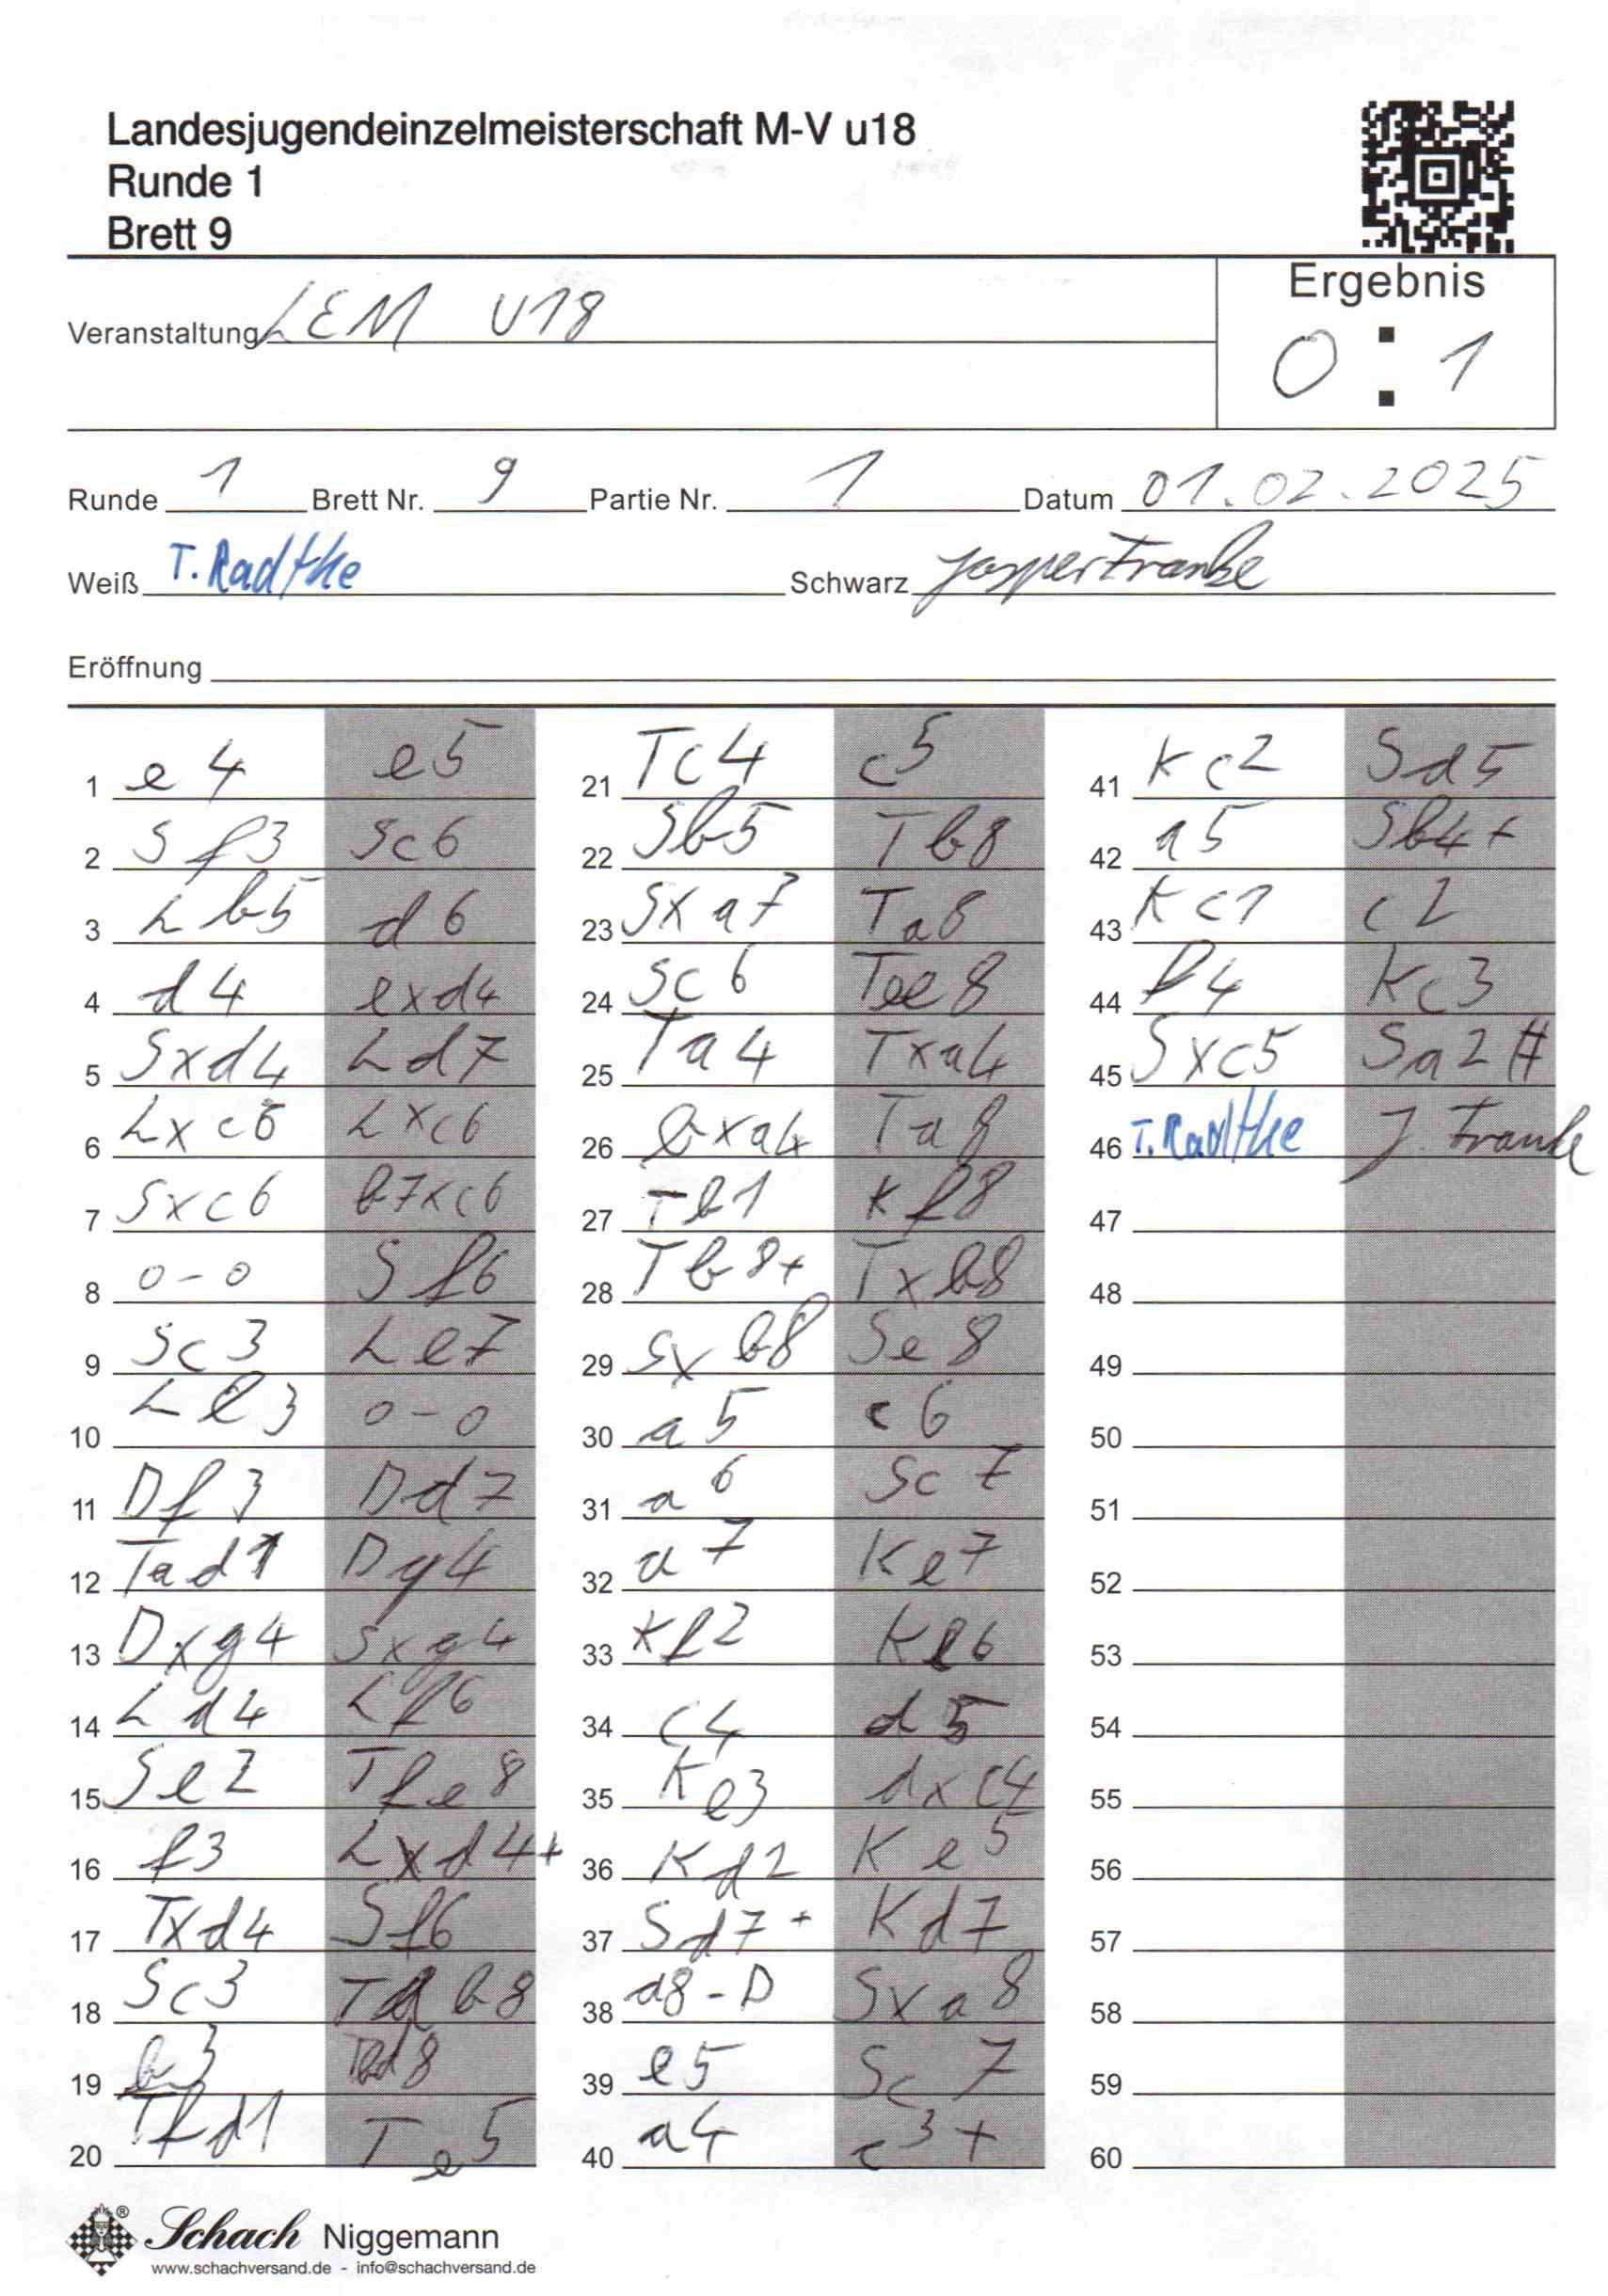 Landesjugendeinzelmeisterschaft M-V u18
Runde 1
Brett 9
Veranstaltung LEM U18
Ergebnis
0 : 1
Runde 1 Brett Nr. 9 Partie Nr. 1 Datum 01.02.2025
Weiß T. Radtke Schwarz Jasper Franke
Eröffnung
1 e4 e5
2 Sf3 Sc6
3 Lb5 d6
4 d4 exd4
5 Sxd4 Ld7
6 Lxc6 Lxc6
7 Sxc6 b7xc6
8 0-0 Sf6
9 Sc3 Le7
10 Le3 0-0
11 Df3 Dd7
12 Tad1 Dg4
13 Dxg4 Sxg4
14 Ld4 Lf6
15 Se2 Tfe8
16 f3 Lxd4+
17 Txd4 Sf6
18 Sc3 Tab8
19 b3 Tbd8
20 Tfd1 Te5
21 Tc4 c5
22 Sb5 Tb8
23 Sxa7 Ta8
24 Sc6 Tee8
25 Ta4 Txa4
26 bxa4 Ta8
27 Tb1 Kf8
28 Tb8+ Txb8
29 Sxb8 Se8
30 a5 c6
31 a6 Sc7
32 a7 Ke7
33 Kf2 Ke6
34 c4 d5
35 Ke3 dxc4
36 Kd2 Ke5
37 Sd7+ Kd7
38 a8-D Sxa8
39 e5 Sc7
40 a4 c3+
41 Kc2 Sd5
42 a5 Sb4+
43 Kc1 c2
44 f4 Kc3
45 Sxc5 Sa2#
46 T. Radtke J. Franke
47
48
49
50
51
52
53
54
55
56
57
58
59
60
Schach Niggemann
www.schachversand.de - info@schachversand.de